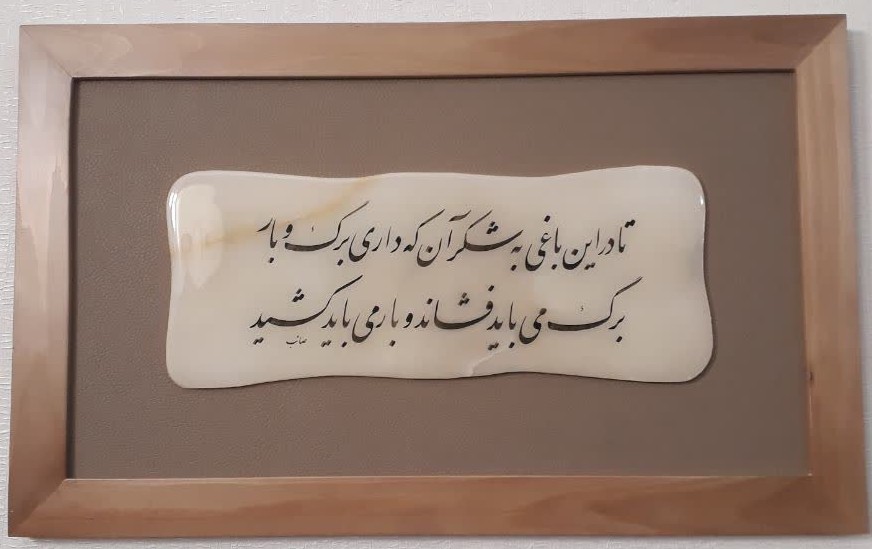 تا در این باغی به شکر آن که داری برگ و بار
برگ می باید فشاند و بار می باید کشید
صائب